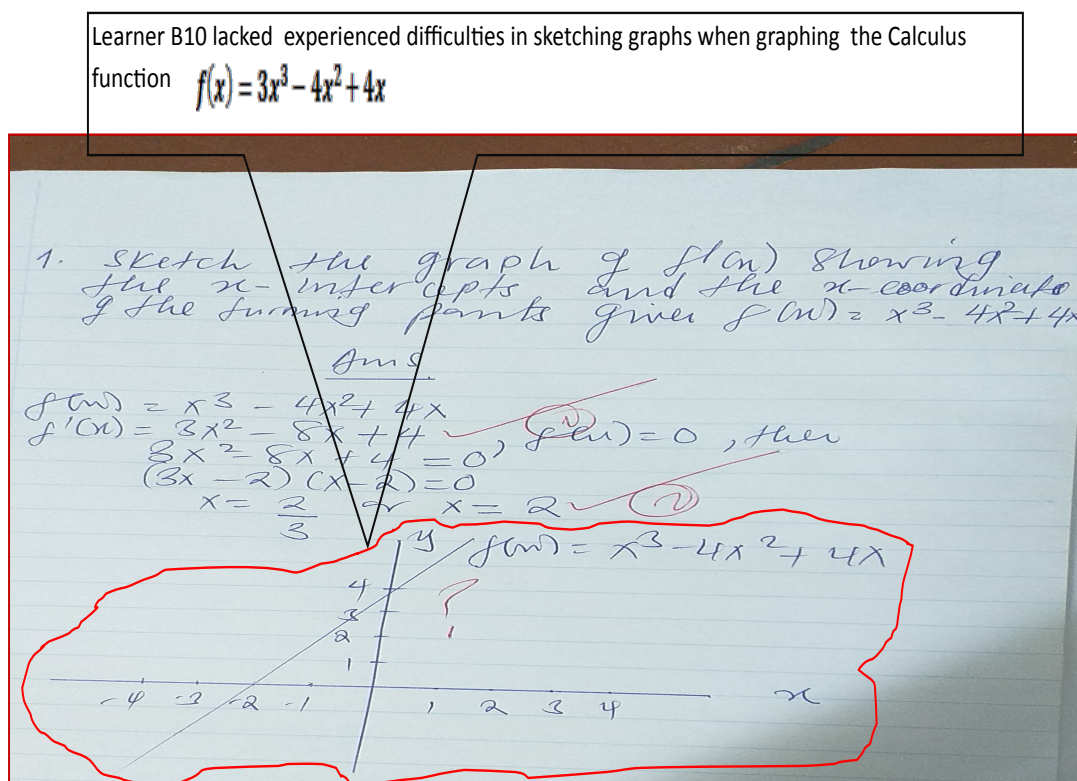 Learner B10 lacked experienced difficulties in sketching graphs when graphing the Calculus
function f(x) = 3x³ – 4x² + 4x
1. Sketch the graph of f(x) showing
the x-intercepts and the x-coordinate
of the turning points given f(x) = x³ - 4x² + 4x
Ans
f(x) = x³ - 4x² + 4x
f'(x) = 3x² - 8x + 4, f'(x) = 0, then
3x² - 8x + 4 = 0
(3x - 2)(x - 2) = 0
x = 2/3 or x = 2
y f(x) = x³ - 4x² + 4x
4
?
3
2
1
-4 -3 -2 -1 1 2 3 4 x